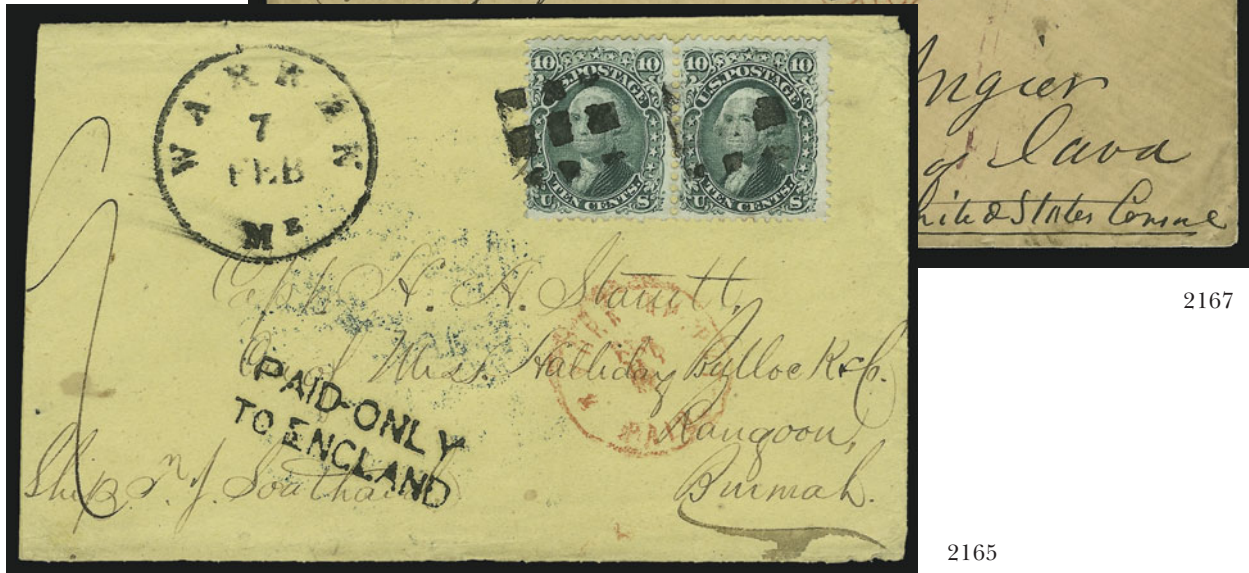 WARREN
7
FEB
ME
10 10
U.S. POSTAGE
TEN CENTS.
U S
10 10
U.S. POSTAGE
TEN CENTS.
U S
Capt H. A. Starrett,
Care of Halliday Bullock & Co.
Rangoon,
Burmah.
Ship
PAID-ONLY
TO ENGLAND
PAID
Angier
of Java
United States Consul
2167
2165